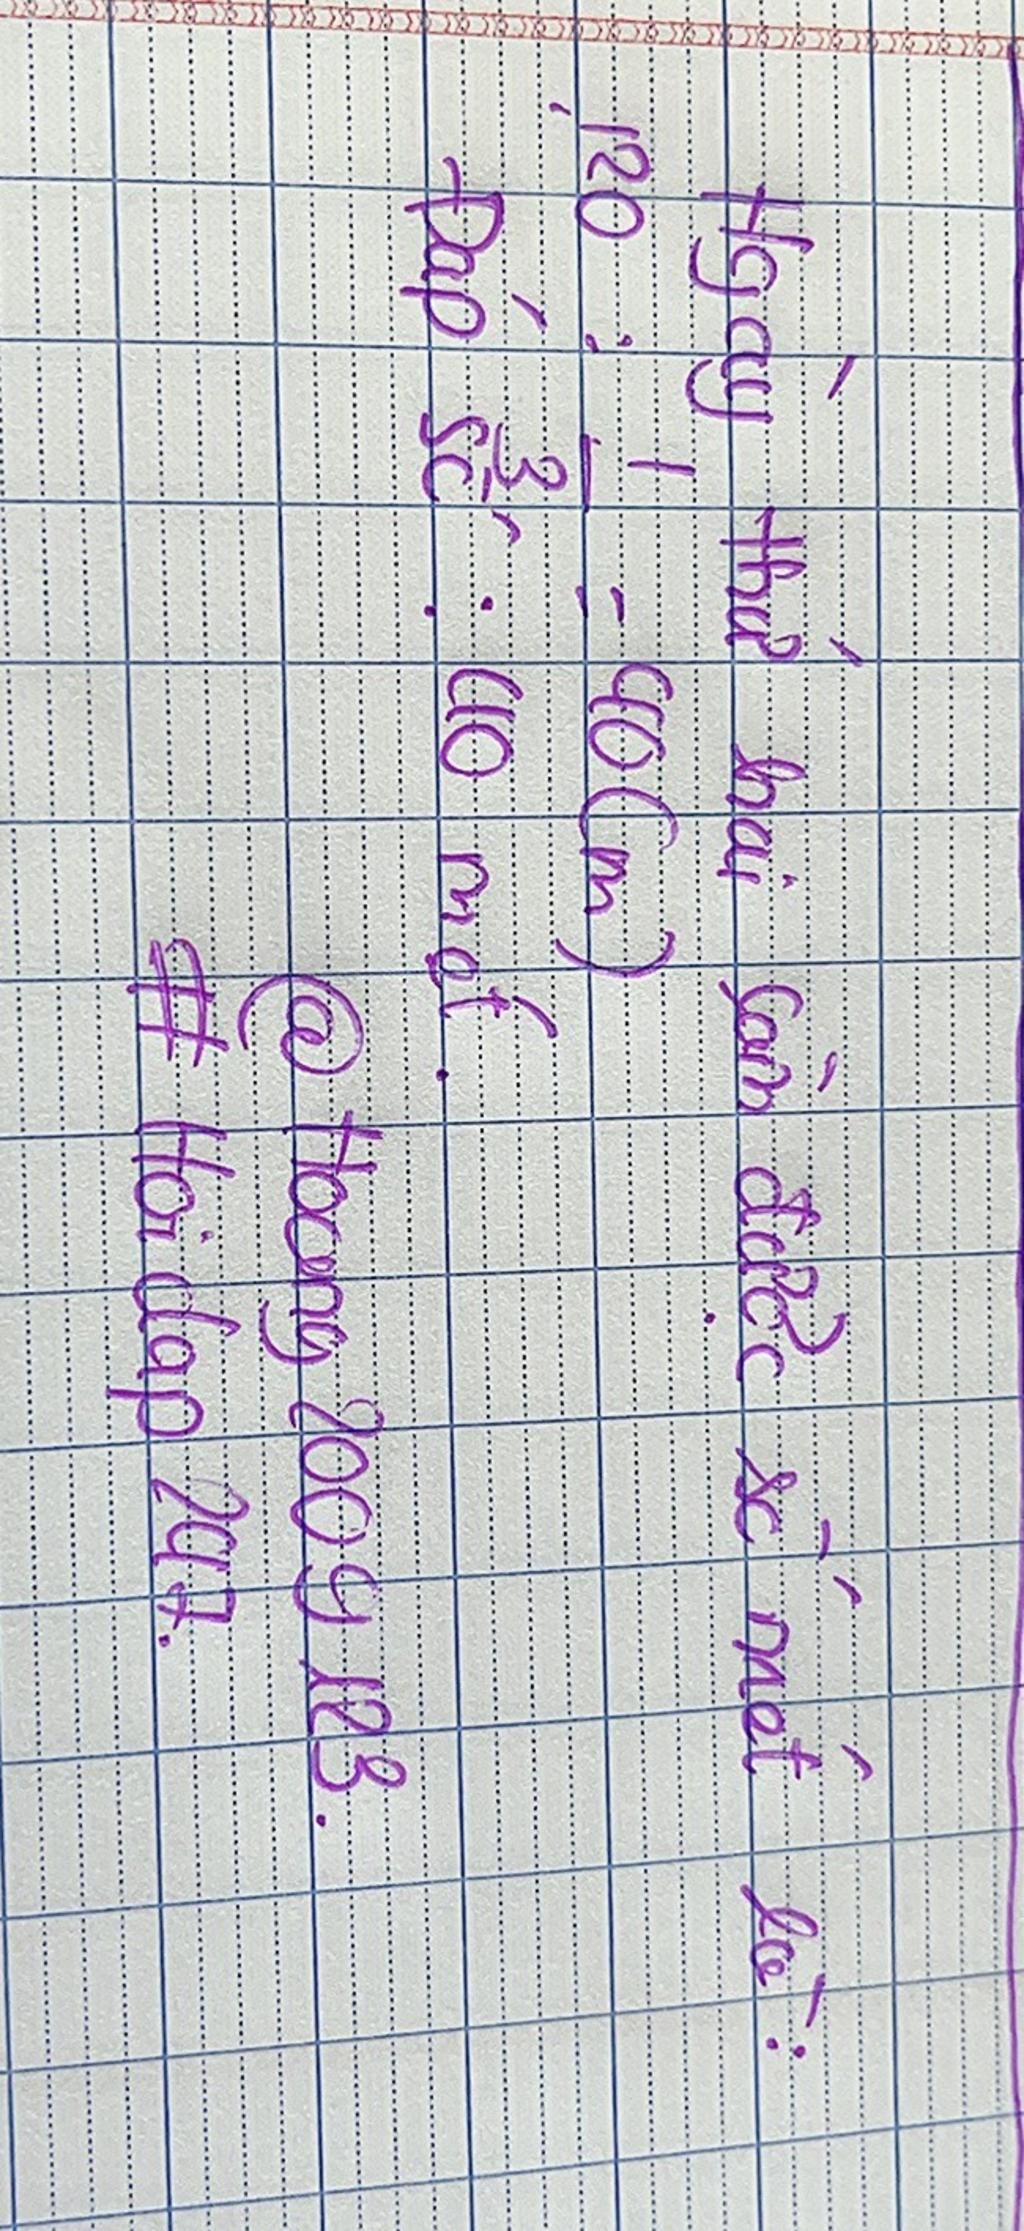 Ngày thứ hai làm được số mét là:
120 : 1/3 = 40 (m)
Đáp số : 40 mét.
@ Hoang 2009123.
# Hoidap 247.